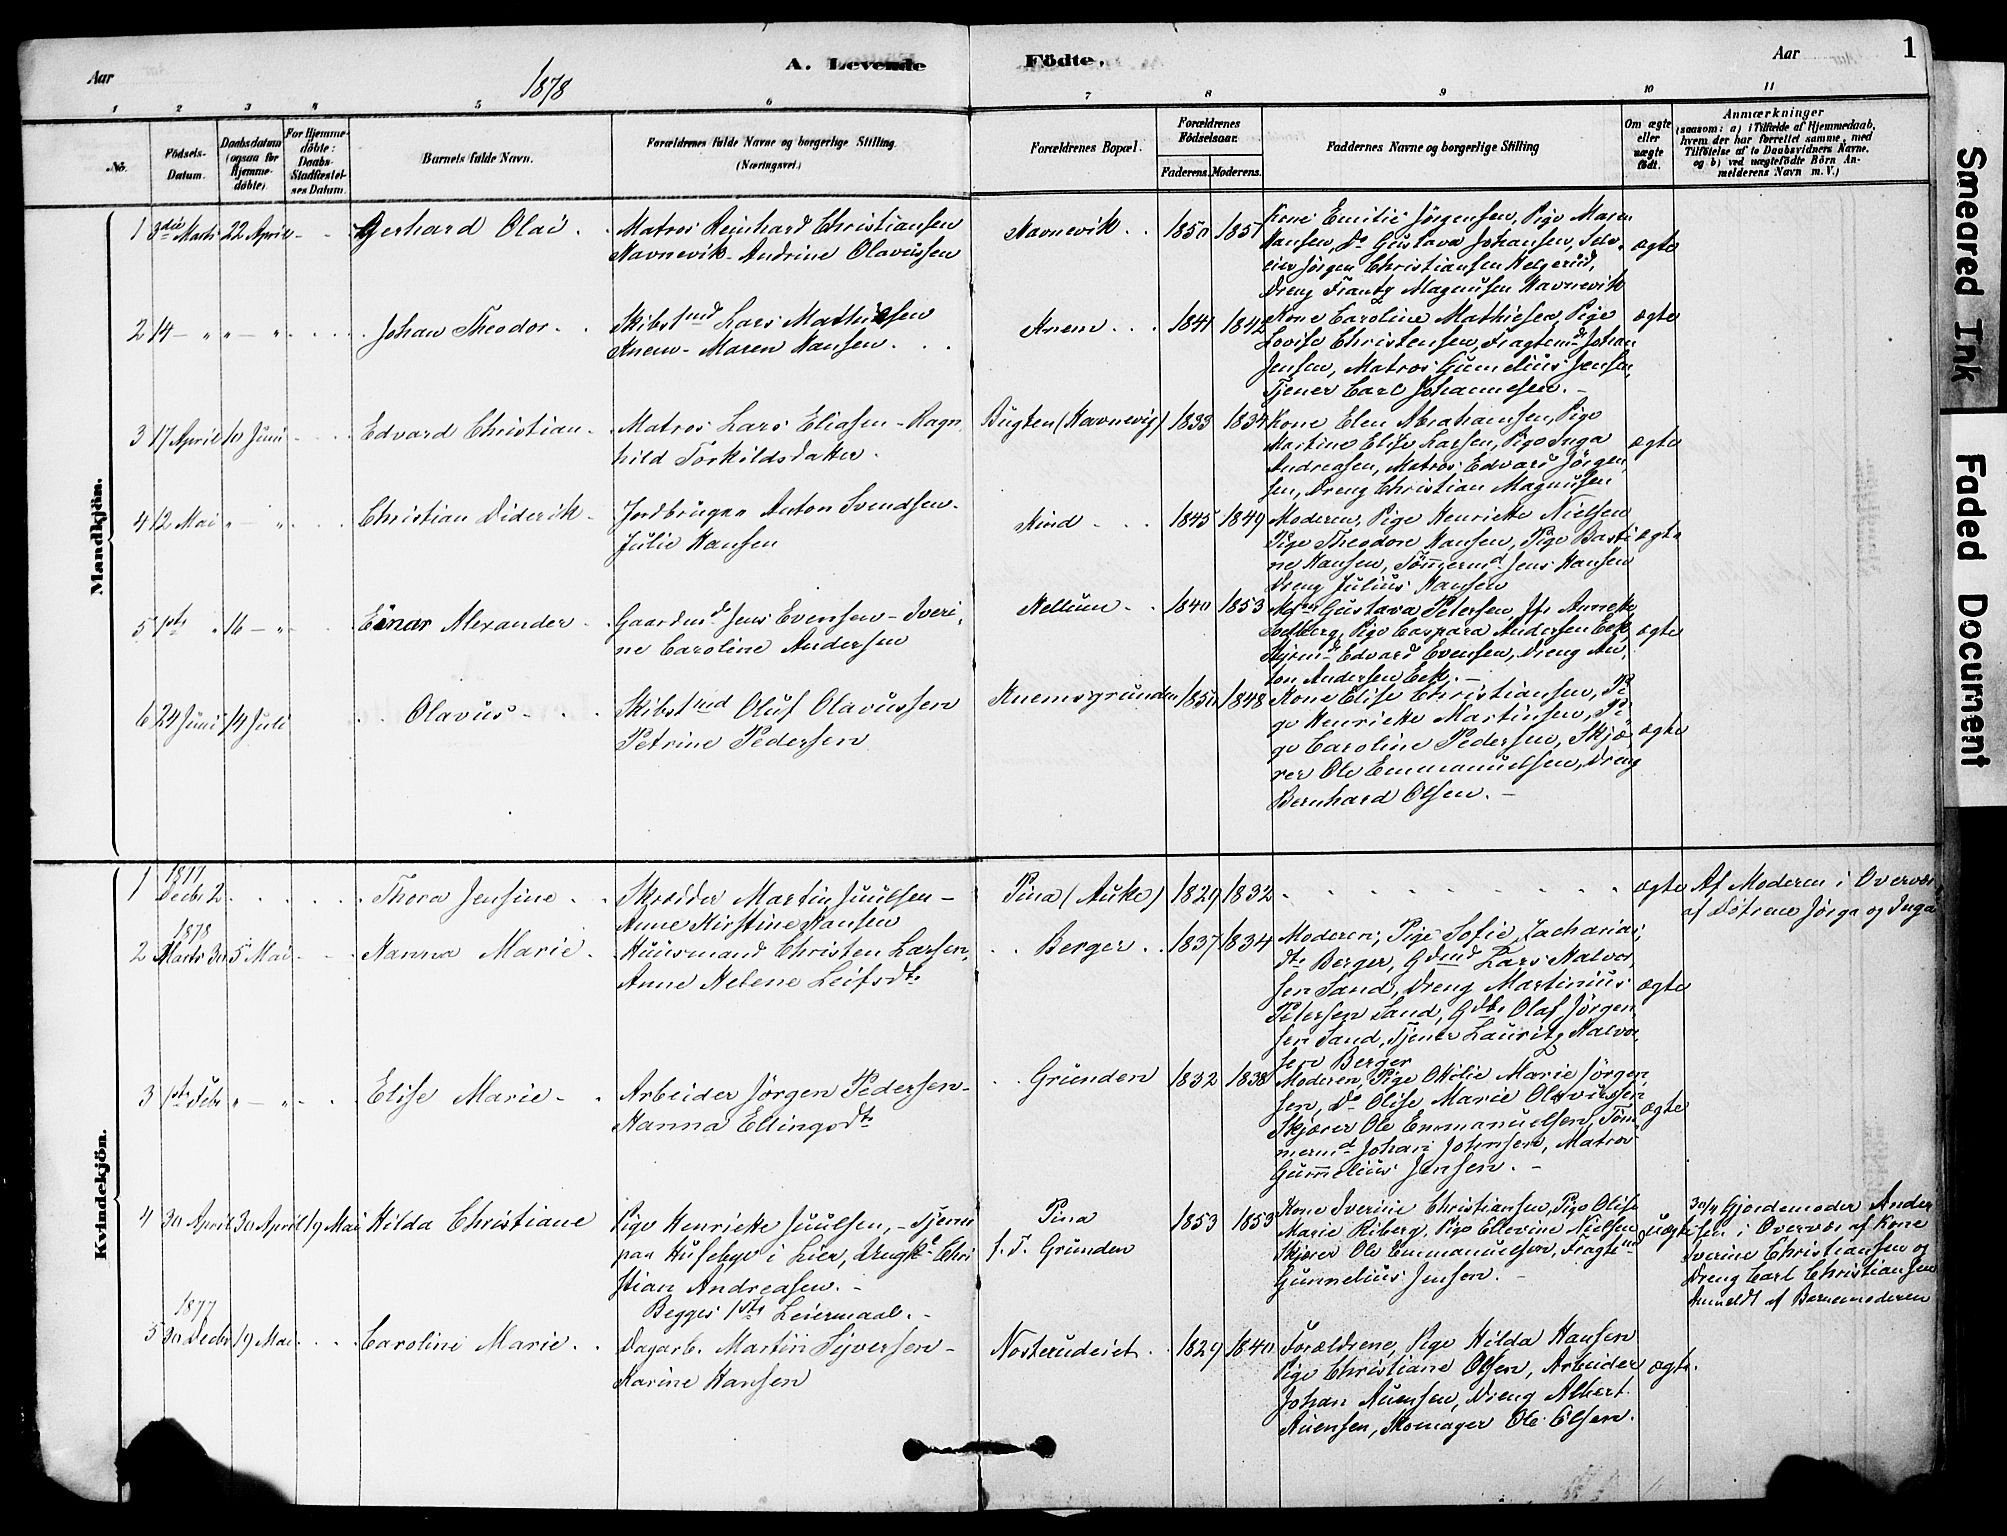 Aar
1878
A. Levende
Födte.
Aar
1
1 2 3 4 5 6 7 8 9 10 11
No.
Födsels-
Datum.
Daabsdatum
(ogsaa for
Hjemme-
döbte).
For Hjemme-
döbte:
Daabs-
Stadfæstel-
ses Datum.
Barnets fulde Navn.
Forældrenes fulde Navne og borgerlige Stilling
(Næringsvei.)
Forældrenes Bopæl.
Forældrenes
Födselsaar.
Faderens. Moderens.
Faddernes Navne og borgerlige Stilling
Om ægte
eller
uægte
födt.
Anmærkninger
(saasom: a) i Tilfælde af Hjemmedaab,
hvem der har forrettet samme, med
Tilföielse af to Daabsvidners Navne,
og b) ved uægtefödte Börn An-
melderens Navn m. V.)
Mandkjön.
1 3die Marts 22 April Gerhard Olai
Matros Reinhard Christiansen
Havnevik - Andrine Olavussen
Havnevik 1850 1851
Kone Emilie Jörgensen, Pige Maren
Hansen, Do Gustava Johansen, Selv
eier Jörgen Christiansen Helgerud,
Dreng Frantz Magnusen Havnevik
ægte
2 14 - " " - " Johan Theodor
Skibstmd Lars Mathiesen
Knem - Maren Hansen
Knem 1841 1842
Kone Caroline Mathiesen, Pige
Lovise Christensen, Fragtemd Johan
Jensen, Matros Gumelius Jensen,
Tjener Carl Johannesen. -
ægte
3 17 April 10 Juni Edvard Christian
Matros Lars Eliasen - Ragn
hild Torkildsdatter.
Bugten (Havnevig) 1833 1834
Kone Elen Abrahamsen, Pige
Martine Elise Larsen, Pige Inga
Andreasen, Matros Edvard Jörgen
sen, Dreng Christian Magnusen
ægte
4 12 Mai " - " Christian Diderik
Jordbruger Anton Svendsen -
Julie Hansen
Kind 1845 1849
Moderen, Pige Henriette Nielsen
Pige Theodore Hansen, Pige Basti
ne Hansen, Tömmermd Jens Hansen
Dreng Julius Hansen
ægte
5 1ste " 16 - " Einar Alexander
Gaardmd Jens Evensen - Iveri
ne Caroline Andersen
Kellum 1840 1853
Gustava Petersen, Jfr Annette
Solberg, Pige Caspara Andersen Eek,
Styrmd Edvard Evensen, Dreng An
ton Andersen Eek. -
ægte
6 24 Juni 14 Juli Olavus
Skibstmd Oluf Olavussen
Petrine Pedersen
Knemsgrunden 1850 1848
Kone Elise Christiansen, Pi
ge Henriette Martinsen, Pi
ge Caroline Pedersen, Skjæ
rer Ole Emmanuelsen, Dreng
Bernhard Olsen. -
ægte
Kvindekjön.
1877
1 Decbr 2 Thora Jensine
Skrædder Martin Juulsen -
Anne Kirstine Hansen
Pina (Auke) 1829 1832
ægte
Af Moderen i Overvær
af Döttrene Jörga og Inga
1878
2 Marts 30 5 Mai Hanna Marie
Huusmand Christen Larsen,
Anne Helene Leifsdtr
Berger 1837 1834
Moderen, Pige Sofie Zacharias
dtr Berger, Gdmd Lars Halvor
sen Sand, Dreng Martinius
Petersen Sand, Gdbr Olaf Jörgen
sen Sand, Tjener Lauritz Halvor
sen Berger
ægte
3 1ste Febr " - " Elise Marie
Arbeider Jörgen Pedersen -
Hanna Ellingsdtr
Grunden 1832 1838
Moderen, Pige Ottilie Marie Jörgen
sen, Do Olise Marie Olavussen
Skjærer Ole Emmanuelsen, Töm
mermd Johan Johnsen, Matros
Gummelius Jensen. -
ægte
4 30 April 30 April 19 Mai Hilda Christiane
Pige Henriette Juulsen, - Tjener
paa Huseby i Lier, Ungk. Chri
stian Andreasen. -
Begges 1ste Leiermaal. -
Pina
f. T. Grunden
1853 1853
Kone Iverine Christiansen, Pige Olise
Marie Riberg, Pige Ellevine Nielsen
Skjærer Ole Emmanuelsen, Fragtemd
Gunnelius Jensen. -
uægte
30/4 Gjordemoder Ander
sen i Overvær af Kone
Iverine Christiansen og
Dreng Carl Christiansen
Anmeldt af Barnemoderen
1877
5 30 Decbr 19 Mai Caroline Marie
Dagarb. Martin Syversen -
Karine Hansen
Nosterudeiet 1829 1840
Forældrene, Pige Hilda Hansen
Pige Christiane Olsen, Arbeider
Johan Auensen, Dreng Albert
Auensen, Skomager Ole Olsen.
ægte
Smeared Ink
Faded Document